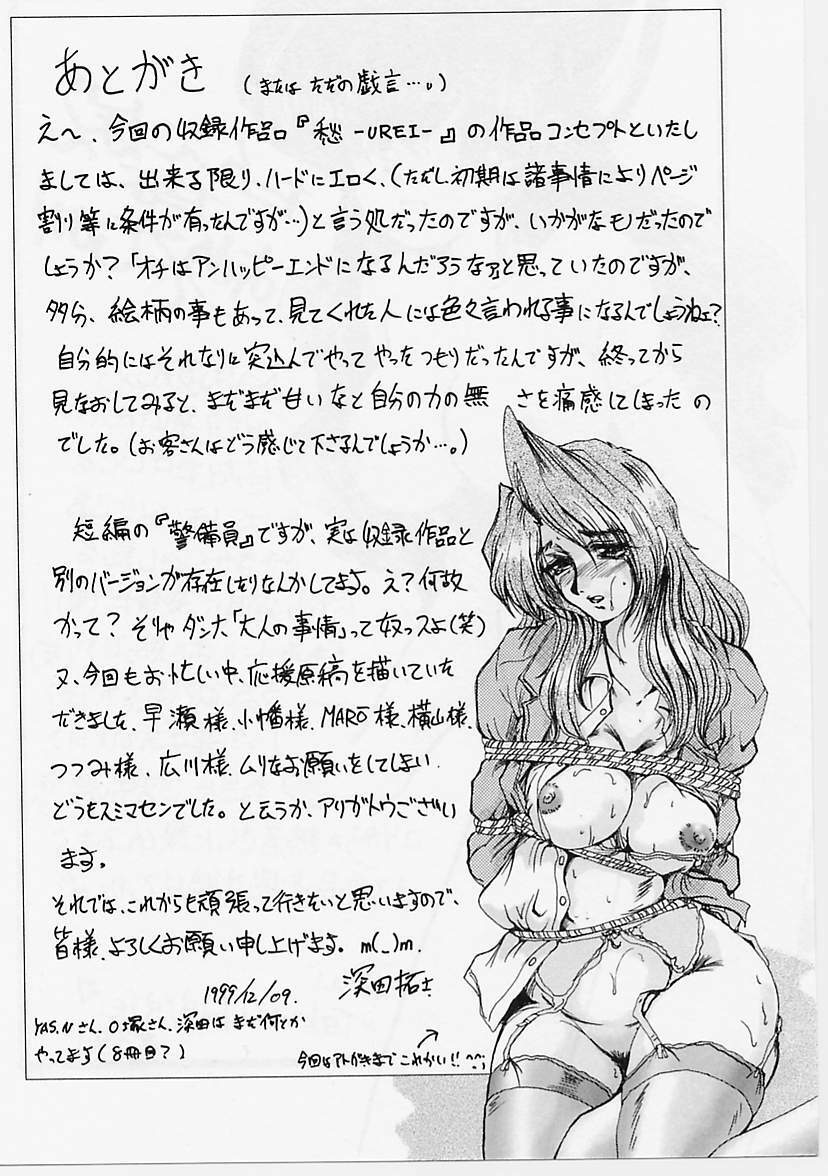 あとがき (またはただの戯言…。)
え〜、今回の収録作品『愁 -UREI- 』の作品コンセプトといたし
ましては、出来る限り、ハードにエロく、(ただし、初期は諸事情によりページ
割り等に条件が有ったんですが…)と言う処だったのですが、いかがなモノだったので
しょうか?「オチはアンハッピーエンドになるんだろうなァ」と思っていたのですが、
多分、絵柄の事もあって、見てくれた人には色々言われる事になるんでしょうねェ?
自分的にはそれなりに突込んでやってやったつもりだったんですが、終ってから
見なおしてみると、まだまだ甘いなと自分の力の無さを痛感してしまったの
でした。(お客さんはどう感じて下さるんでしょうか…。)
短編の『警備員』ですが、実は収録作品と
別のバージョンが存在しちゃりなんかしてます。え?何故
かって?そりゃダンナ「大人の事情」って奴っスよ(笑)
又、今回もお忙しい中、応援原稿を描いていた
だきました、早瀬様、小幡様、MARO様、横山様、
つつみ様、広川様、ムリなお願いをしてしまい
どうもスミマセンでした。と云うか、アリガトウござい
ます。
それでは、これからも頑張って行きたいと思いますので、
皆様、よろしくお願い申し上げます。m(_)m.
1999/12/09. 深田拓士
YAS.Nさん、O塚さん、深田はまだ何とか
やってます(8冊目?)
今回はアトガキまでこれかい!! ^^;